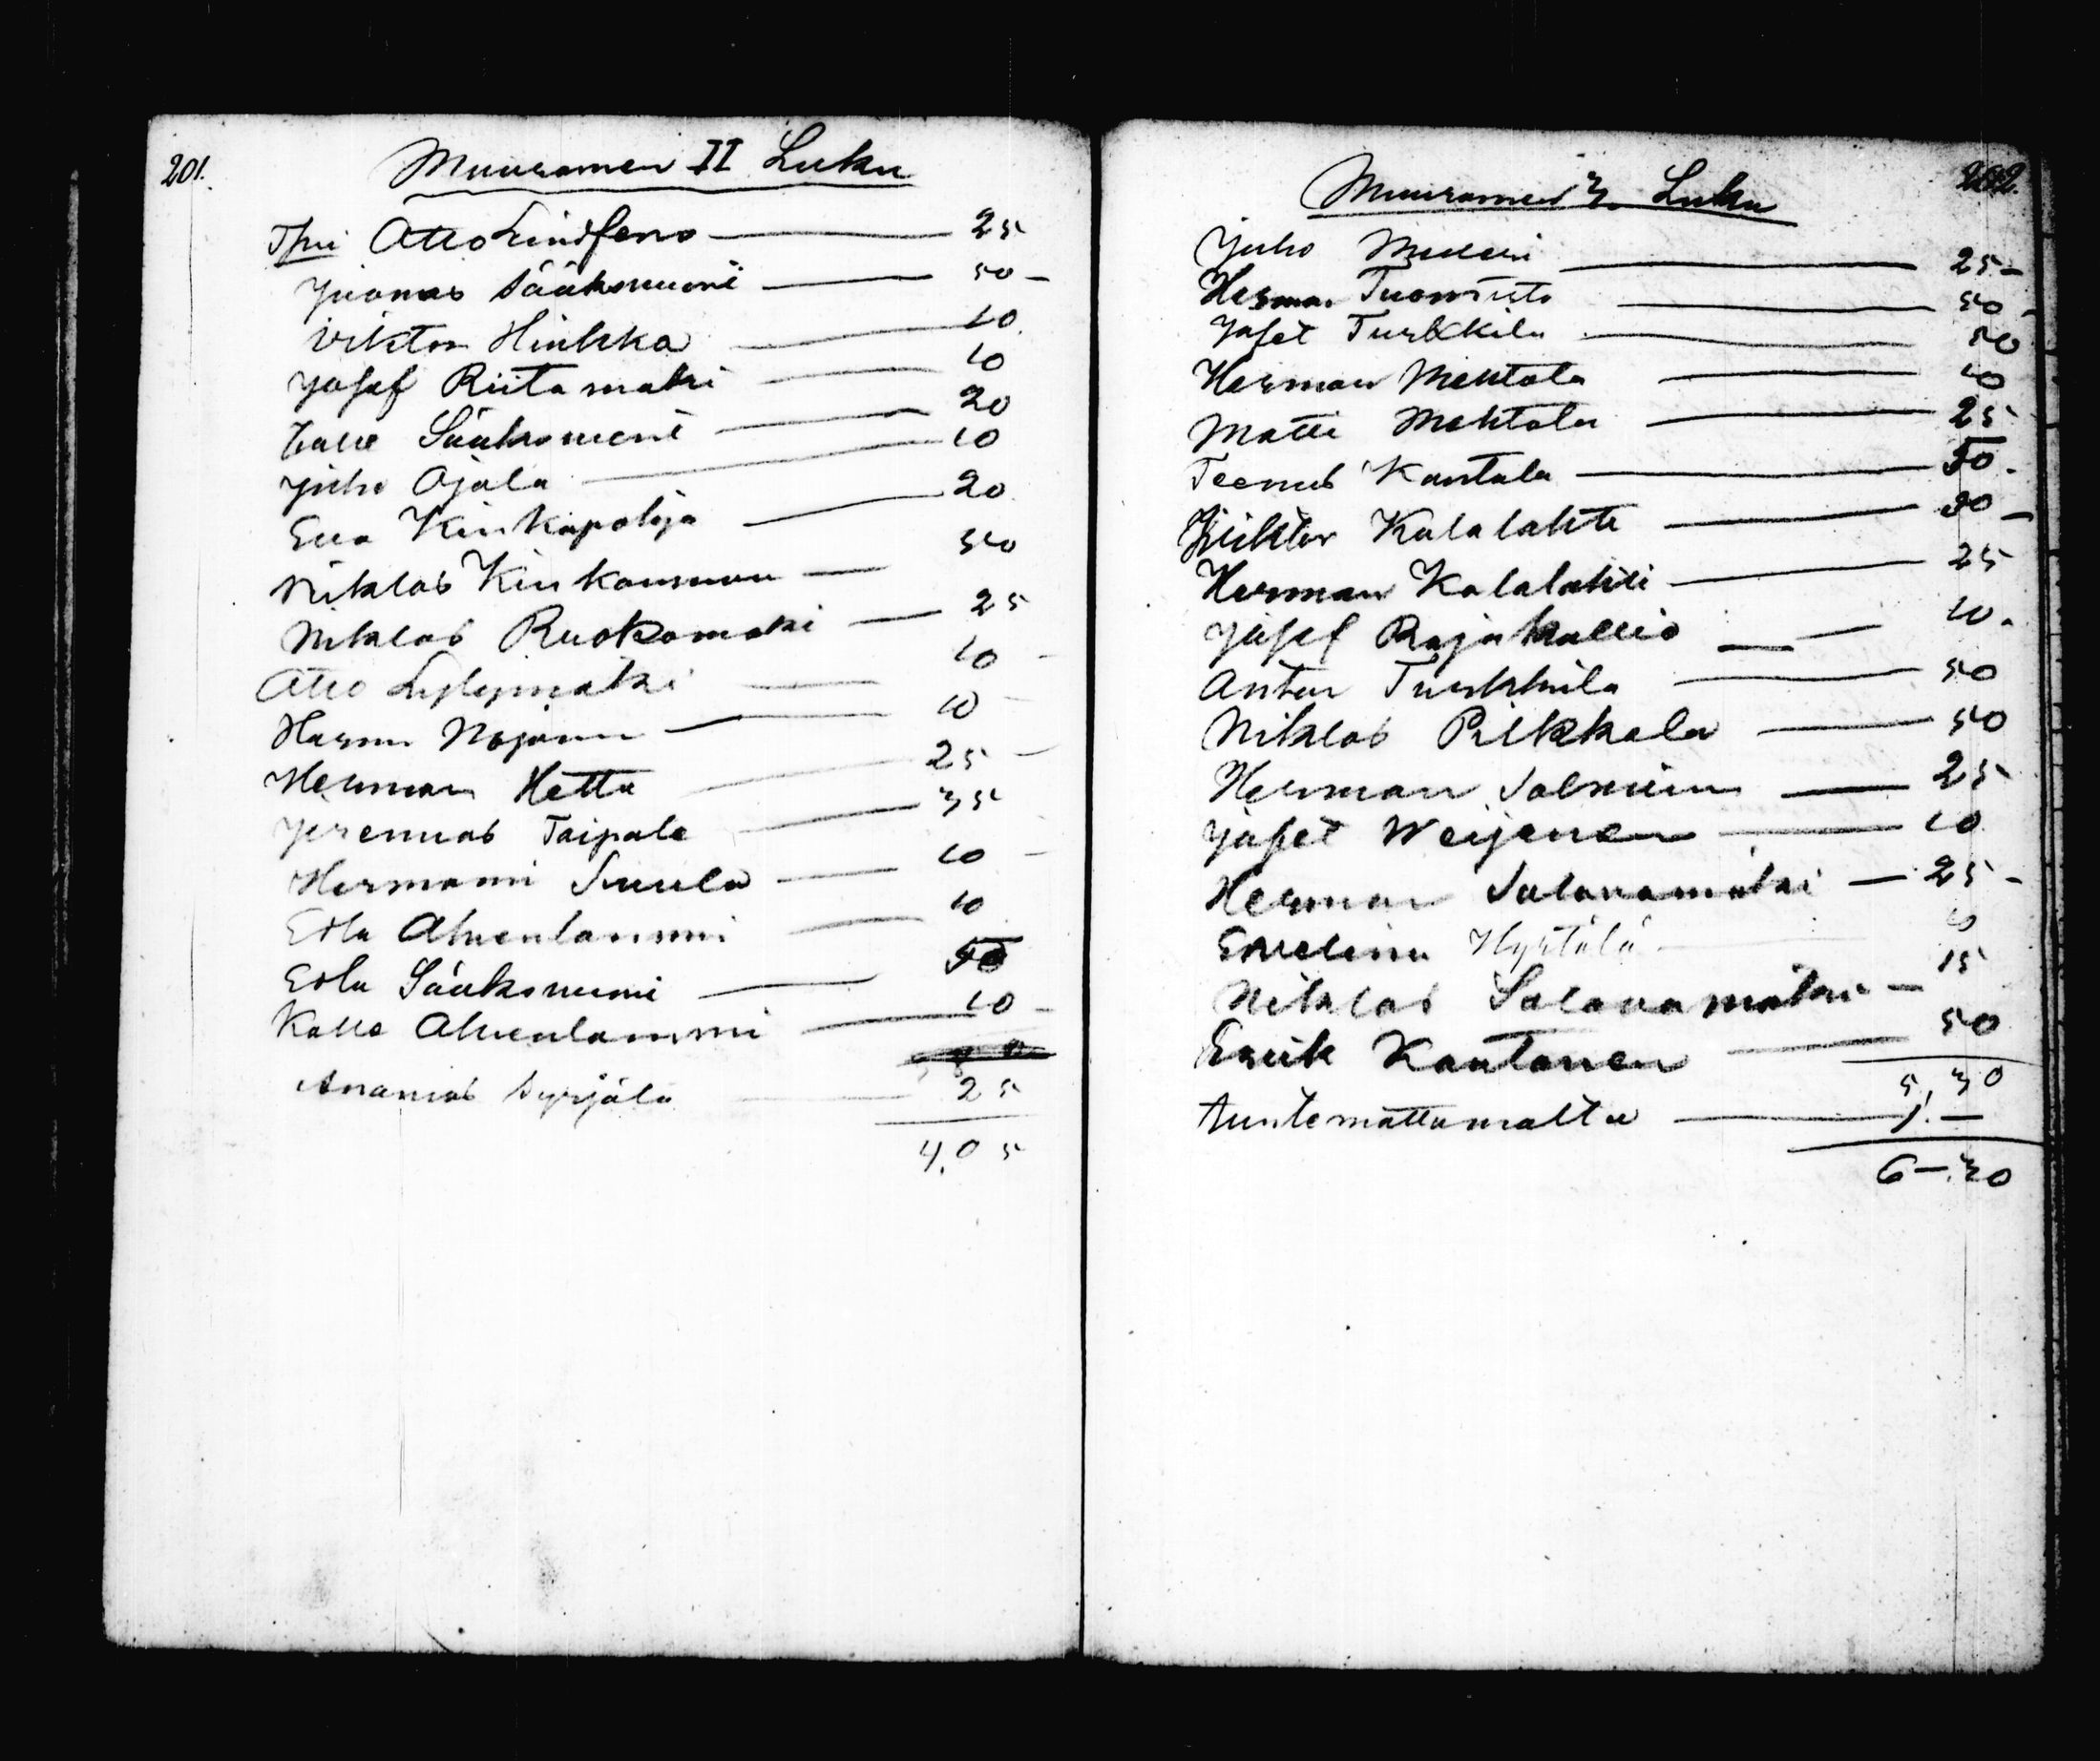 201.
Muuramen II Luku
Otto Lindfors 25
Joonas Sääksniemi 50 –
Viktor Hinkka 10.
Josef Riitamäki 10
Kalle Sääksniemi 20
Juho Ojala 10
Eva Kinkapohja 20
Niklas Kinkamman 50
Niklas Ruokomäki 25
Otto Lylymäki 10 –
Herman Nojanen 10 –
Herman Hetta 25 –
Jeremias Taipale 35
Hermanni Suula 10 –
Edla Ahvenlammi 10
Edla Sääksniemi 50
Kalle Ahvenlammi 10 –
Ananias Syrjälä 25
4,05
202.
Muuramen 3. Luku
Juho Mulari 25 –
Herman Tuomisto 50 –
Jafet Turkkila 50
Herman Mehtola 40
Matti Mehtola 25
Teemus Kantola 50.
Viihtor Kalalahti 30 –
Herman Kalalahti 25
Josef Rajakallio 10.
Anton Turkkila 50
Niklas Pilkkala 50
Herman Salminen 25
Jafet Weijanen 10
Herman Salavamäki – 25 –
Eveliina Hyrtälä
Niklas Salavamäki – 15
Eerik Kautonen 50
5,30
tuntemattomalta 1. –
6 – 30